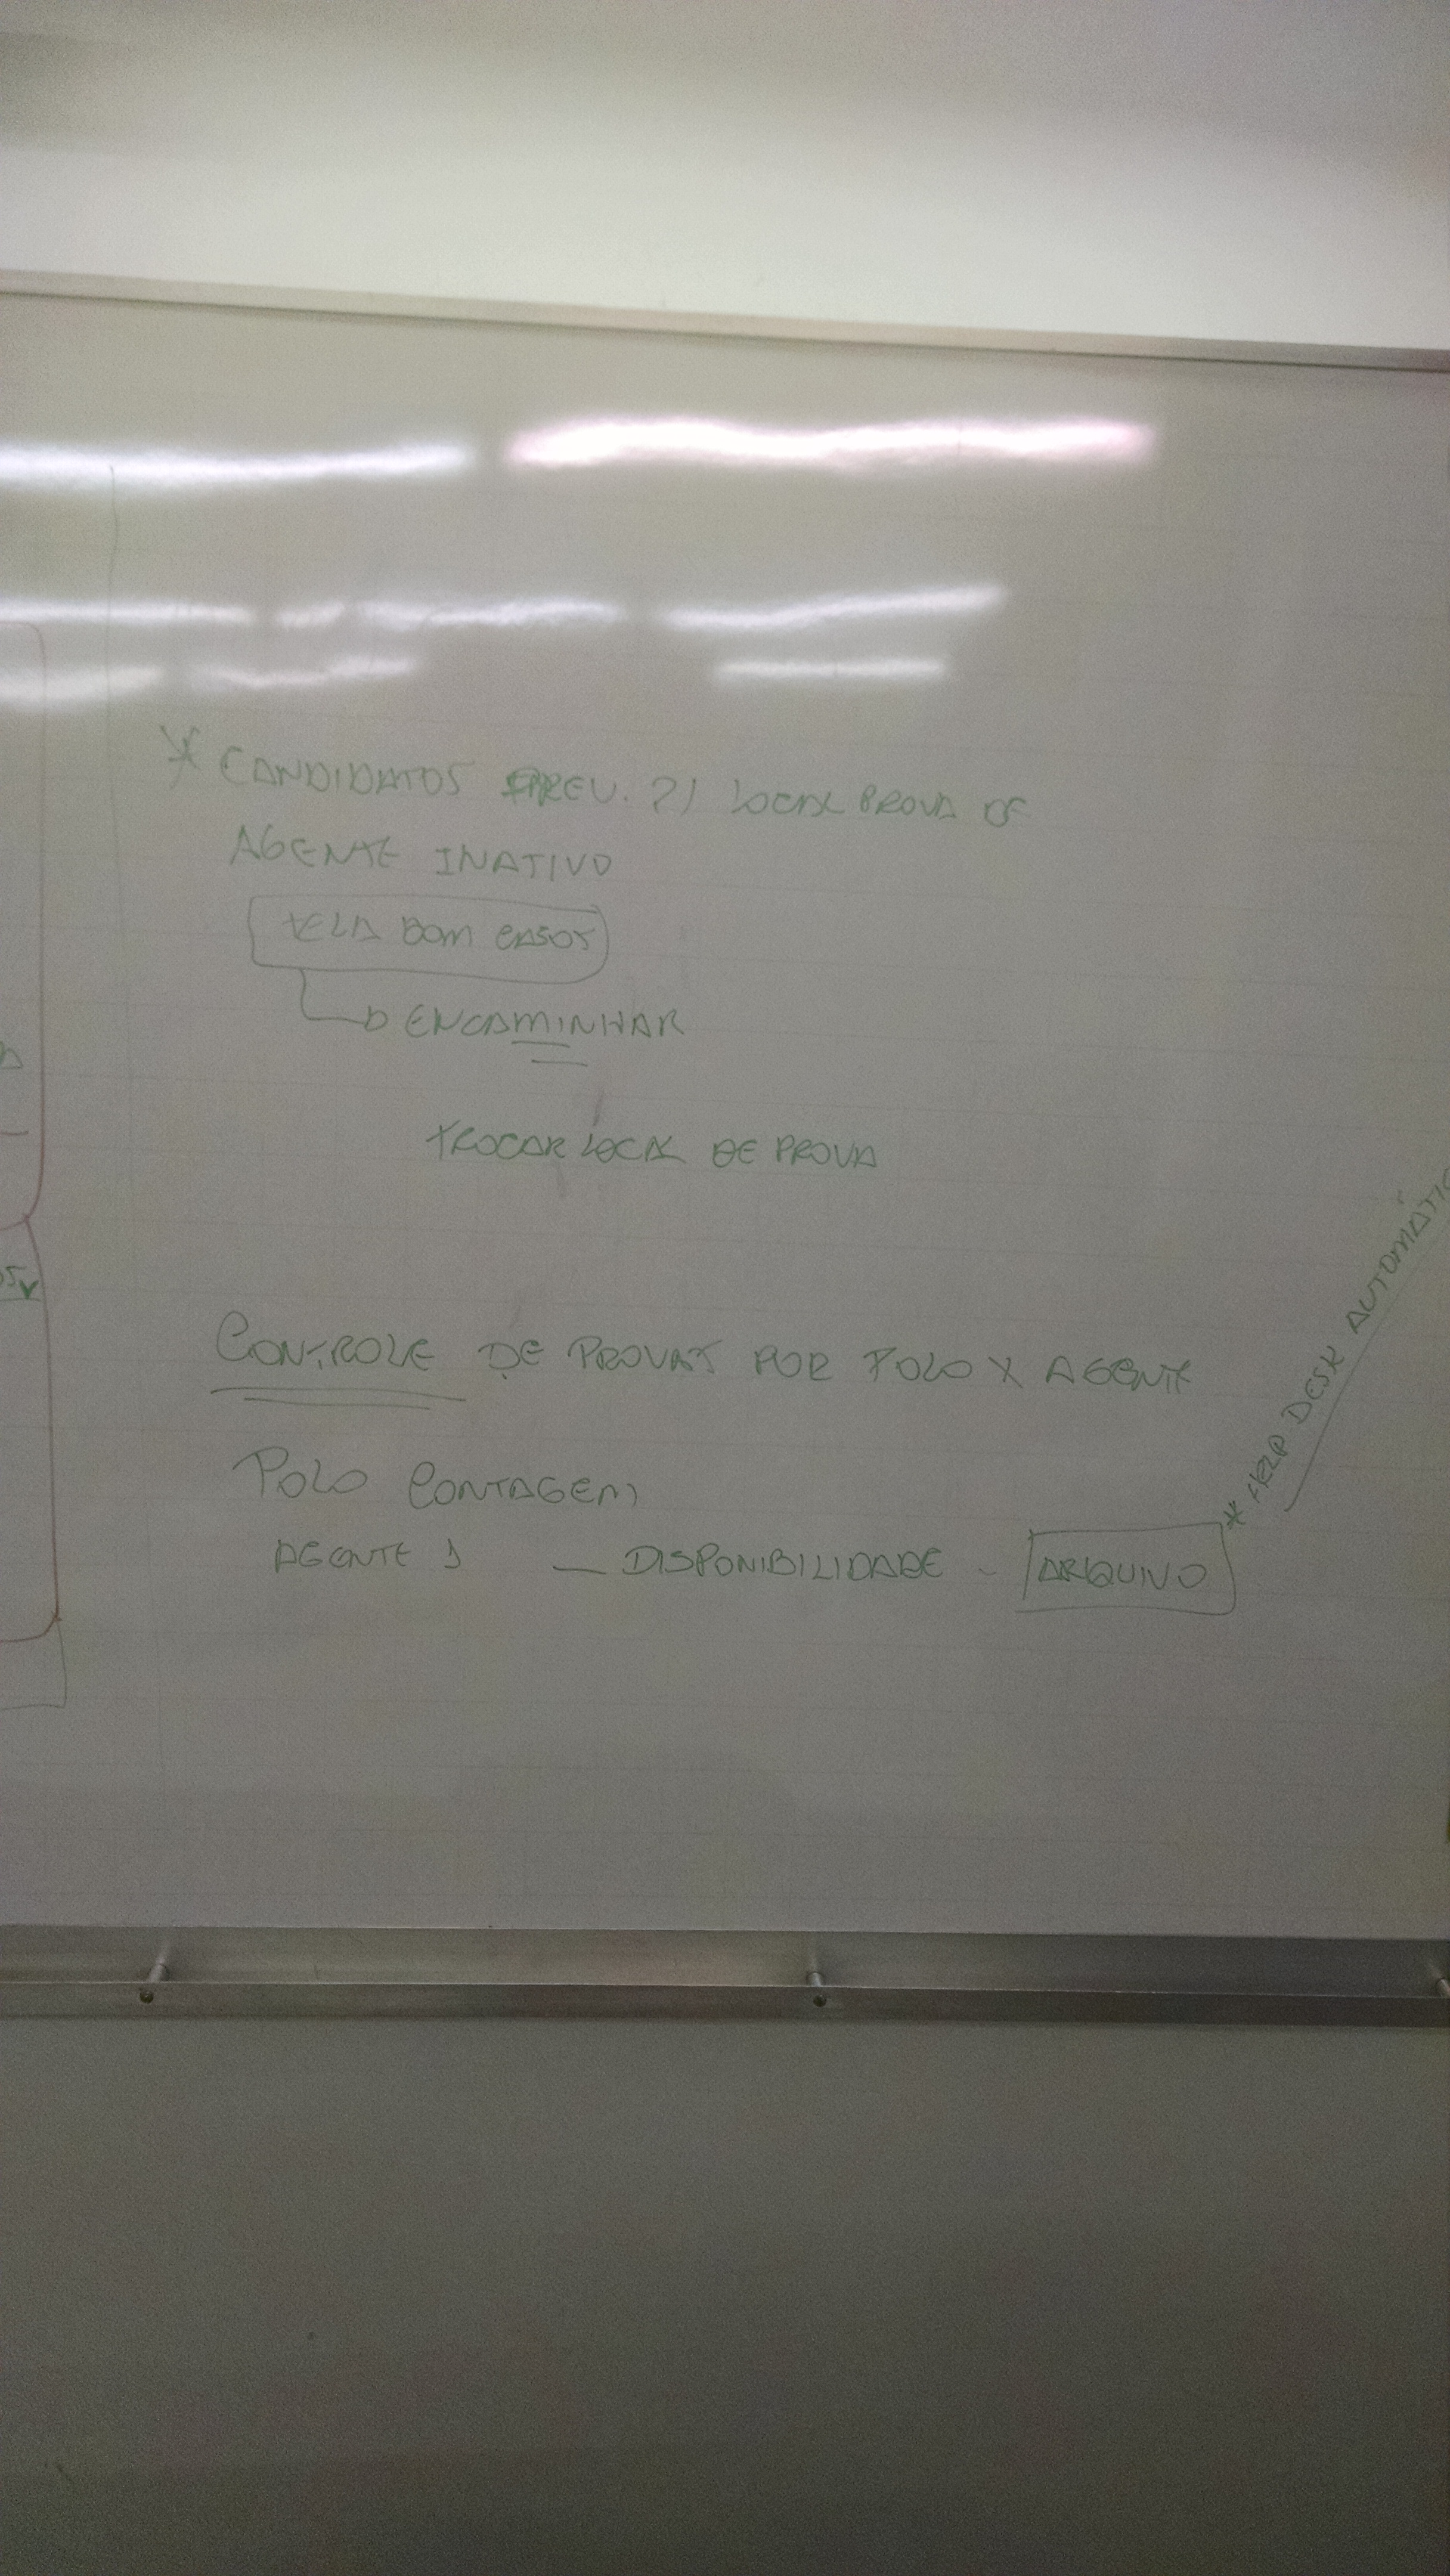 * CANDIDATOS P/ LOCAL PROVA DE
AGENTE INATIVO
TELA COM CASOS
ENCAMINHAR
TROCAR LOCAL DE PROVA
CONTROLE DE PROVAS POR POLO X AGENTE
POLO CONTAGEM
AGENTE 1 — DISPONIBILIDADE - ARQUIVO
* HELP DESK